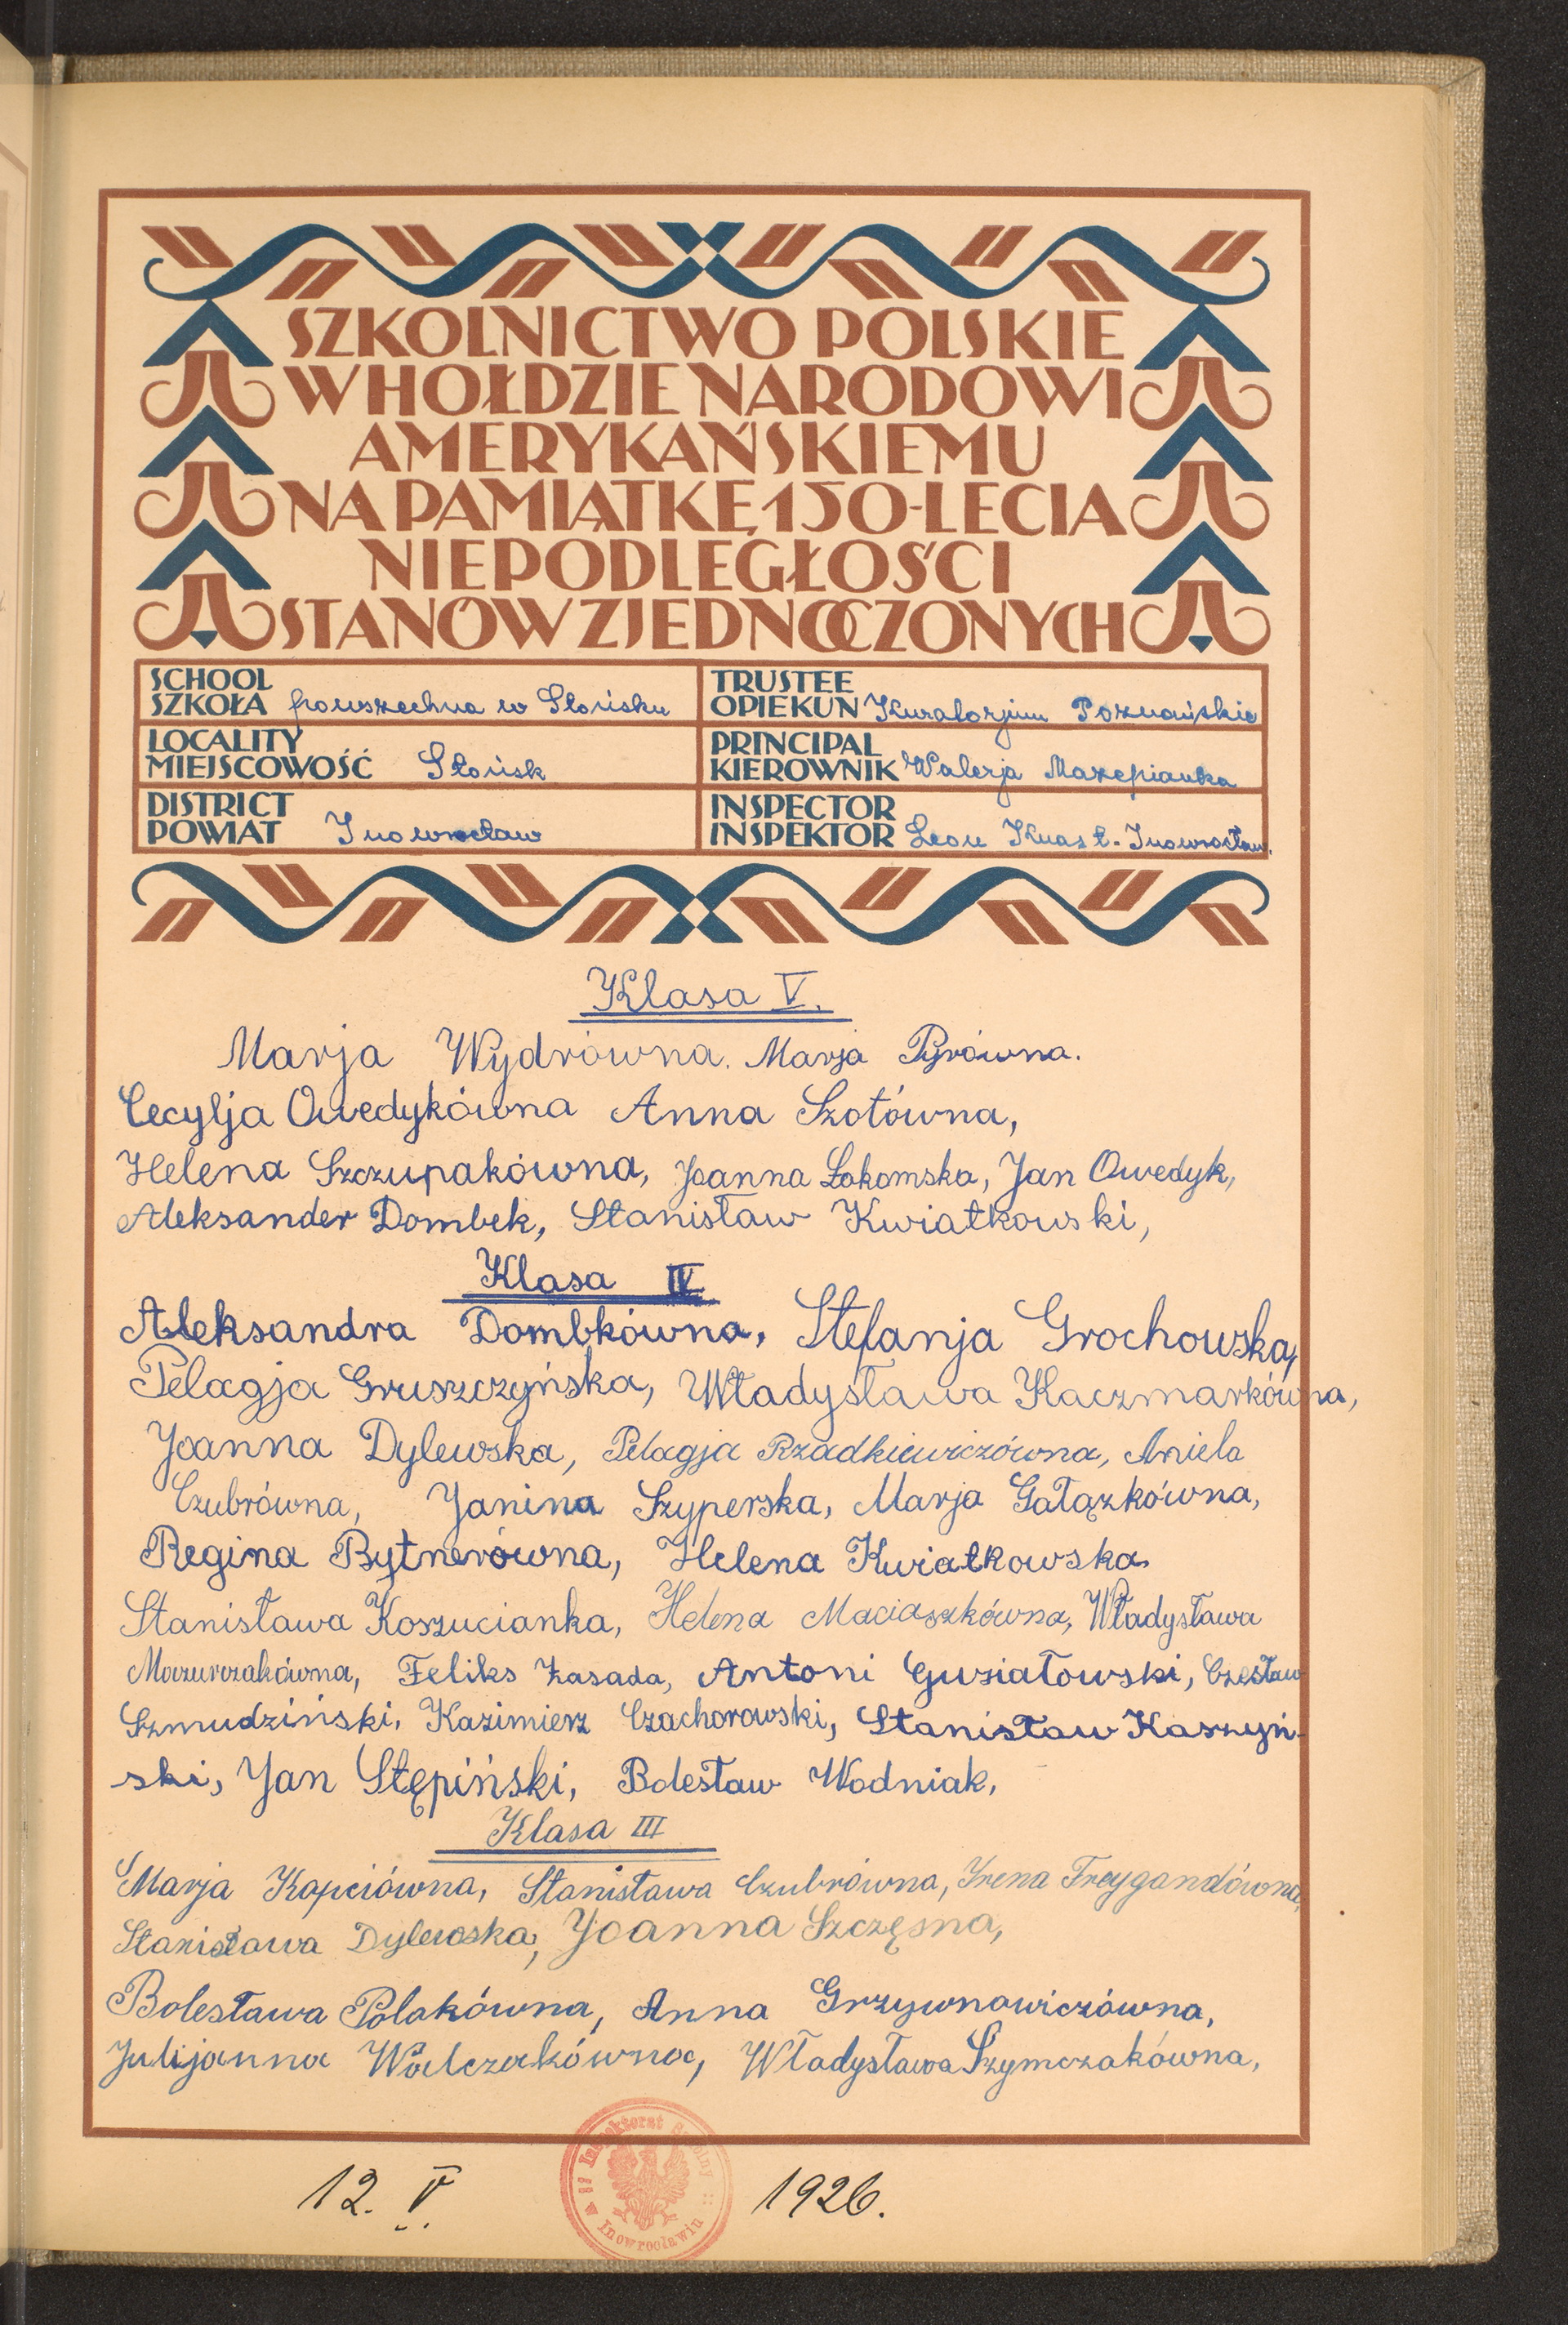 SZKOLNICTWO POLSKIE
W HOŁDZIE NARODOWI
AMERYKAŃSKIEMU
NA PAMIĄTKĘ 150-LECIA
NIEPODLEGŁOŚCI
STANÓW ZJEDNOCZONYCH
SCHOOL
SZKOŁA powszechna w Słońsku
TRUSTEE
OPIEKUN Kuratorjum Poznańskie
LOCALITY
MIEJSCOWOŚĆ Słońsk
PRINCIPAL
KIEROWNIK Walerja Mazepianka
DISTRICT
POWIAT Inowrocław
INSPECTOR
INSPEKTOR Leon Knast - Inowrocław.
Klasa V.
Marja Wydrówna. Marja Pyrówna.
Cecylja Owedykówna Anna Szotówna,
Helena Szczupakówna, Joanna Łakomska, Jan Owedyk,
Aleksander Dombek, Stanisław Kwiatkowski,
Klasa IV
Aleksandra Dombkówna, Stefanja Grochowska,
Pelagja Gruszczyńska, Władysława Kaczmarkówna,
Joanna Dylewska, Pelagja Rzadkiewiczówna, Aniela
Czubrówna, Janina Szyperska, Marja Gałązkówna,
Regina Bytnerówna, Helena Kwiatkowska
Stanisława Koszucianka, Helena Maciaszkówna, Władysława
Mazurczakówna, Feliks Zasada, Antoni Guziałowski, Czesław
Szmudziński, Kazimierz Czachorowski, Stanisław Kaszyń-
ski, Jan Stępiński, Bolesław Wodniak,
Klasa III
Marja Kapciówna, Stanisława Czubrówna, Irena Freygandówna,
Stanisława Dylewska, Joanna Szczęsna,
Bolesława Polakówna, Anna Grzywnowiczówna,
Julijanna Walczakówna, Władysława Szymczakówna,
Inspektorat Szkolny
w Inowrocławiu
12. V. 1926.